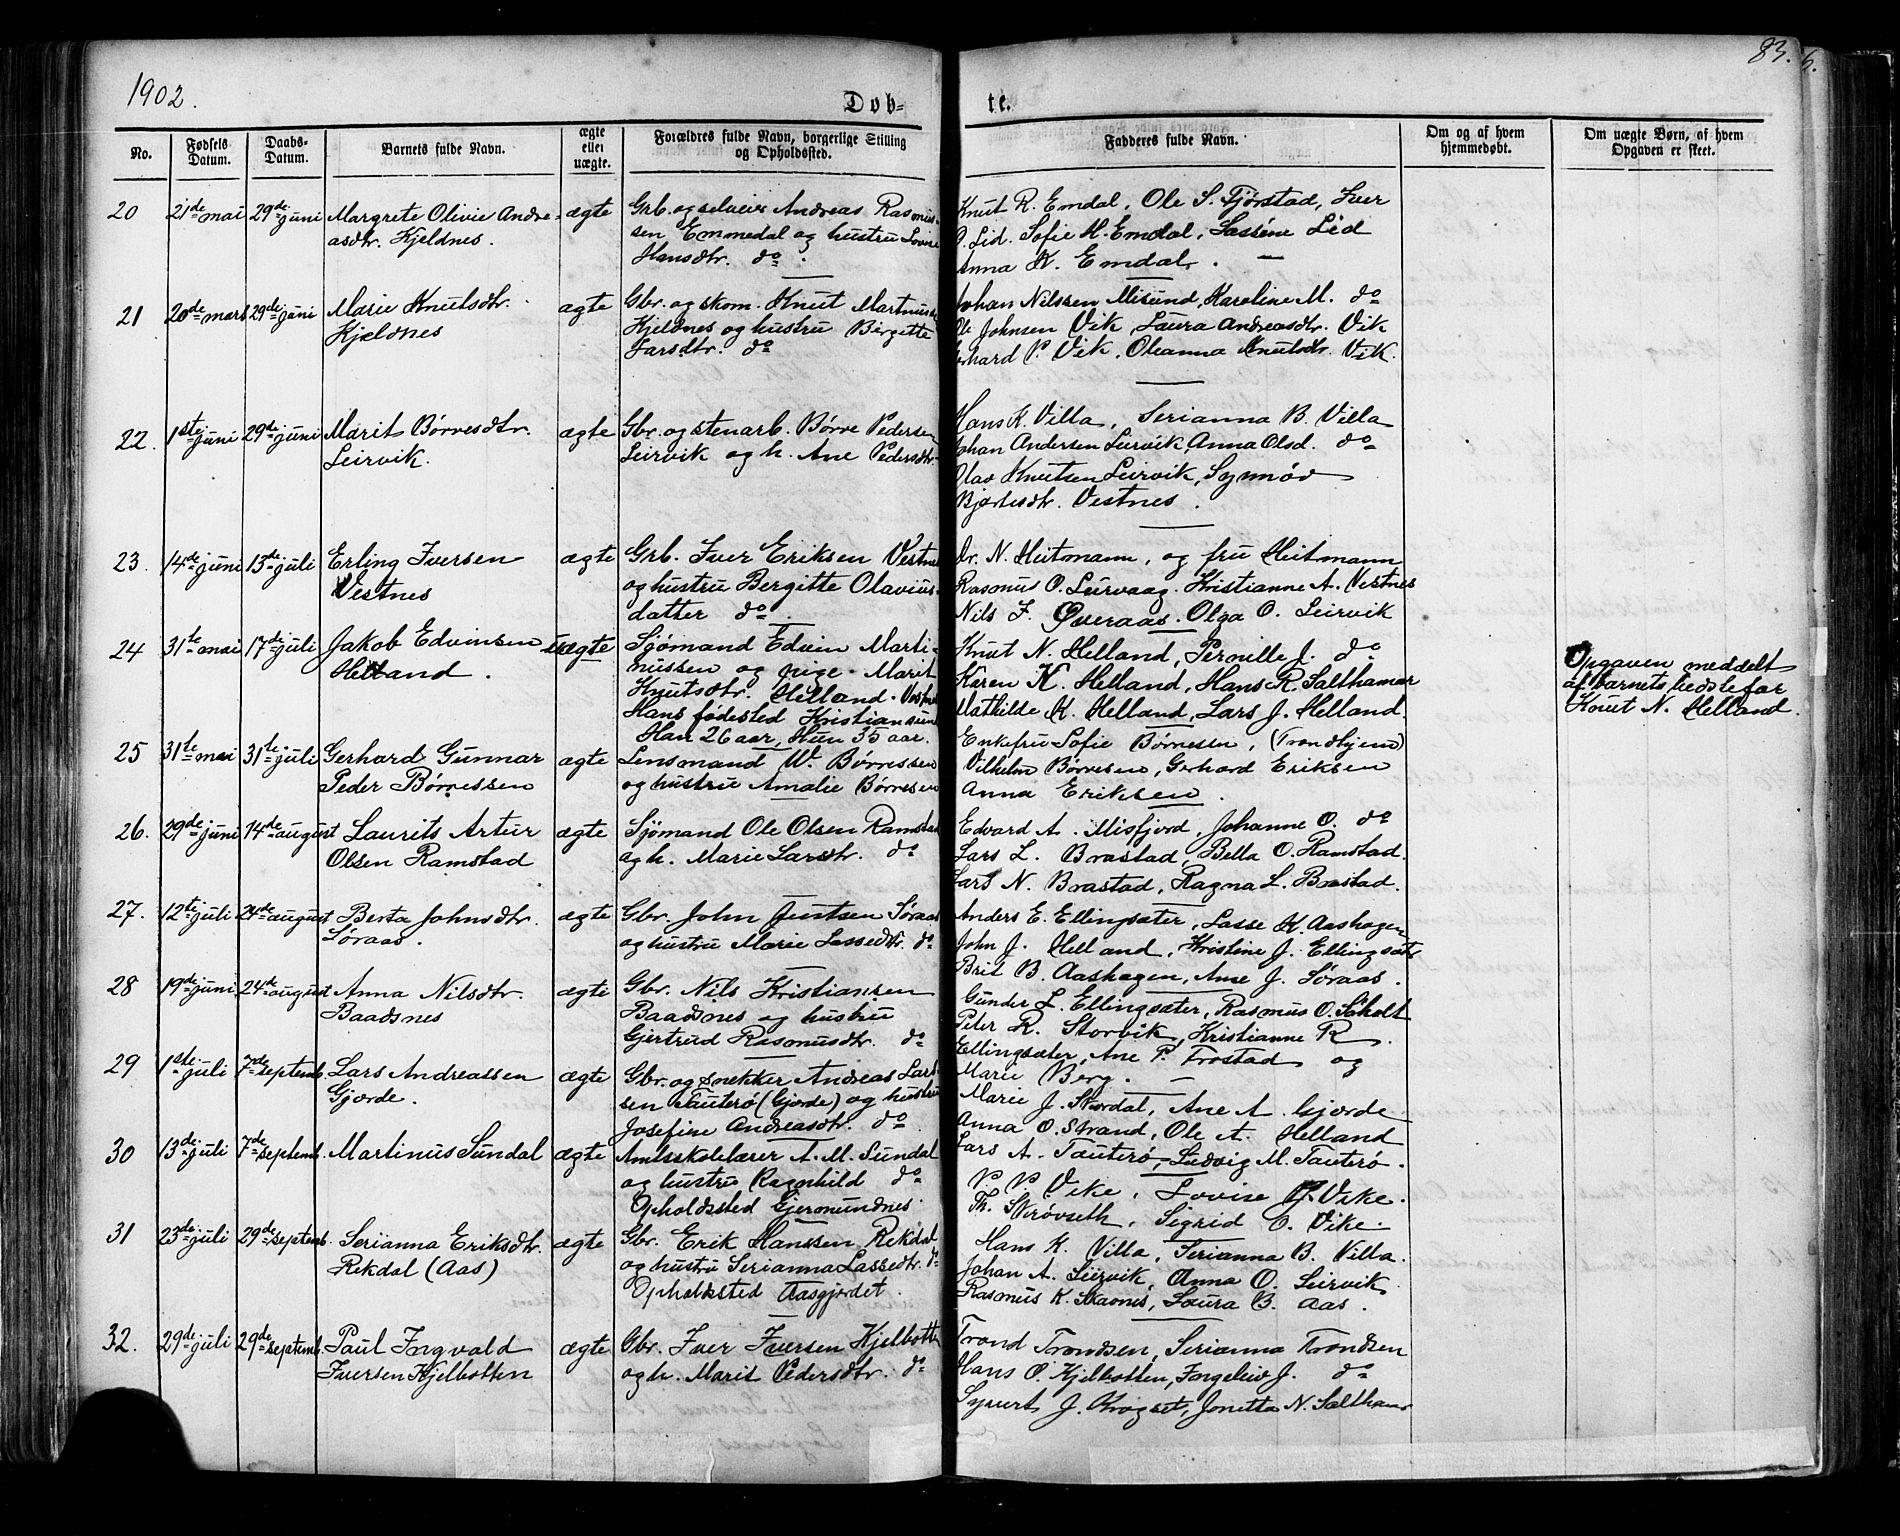 1902.
83.
6.
Døb-
te.
No.
Fødsels Datum.
Daabs-Datum.
Barnets fulde Navn.
ægte eller uægte.
Forældres fulde Navn, borgerlige Stilling og Opholdssted.
Fadderes fulde Navn.
Om og af hvem hjemmedøbt.
Om uægte Børn, af hvem Opgaven er skeet.
20 21de mai 29de juni Margrete Olivie Andre-
asdtr. Kjeldnes.
ægte
Grb. og selveier Andreas Rasmus-
sen Emmedal og hustru Lovise
Hansdtr. do.
Knut R. Emdal, Ole S. Fjørstad, Iver
O. Lid. Sofie H. Emdal, Lassene Lid
Anna K. Emdal.
21 20de mars 29de juni Marie Knutsdtr.
Kjeldnes
ægte
Gbr. og skom. Knut Martinus
Kjeldnes og hustru Birgitte
Larsdtr. do
Johan Nilssen Misund, Karoline M. do
Ole Johnsen Vik, Laura Andreasdtr. Vik
Gerhard P. Vik, Oleanna Knutsdtr. Vik.
22. 1ste juni 29de juni Marit Børvesdtr.
Leirvik.
ægte
Gbr. og stenarb. Børve Pedersen
Leirvik og h. Ane Pedersdtr.
Hans K. Villa, Serianna B. Villa
Johan Andersen Leirvik, Anna Olsd. do
Olav Knutsen Leirvik, Synnøv
Bjartesdtr. Vestnes.
23. 14de juni 13de juli Erling Iversen
Vestnes
ægte
Grb. Iver Eriksen Vestnes
og hustru Bergitte Olavius-
datter do.
Dr. N. Heitmann, og fru Heitmann
Rasmus O. Leirvaag. Kristianne A. Vestnes
Nils J. Øveraas. Olga O. Leirvik
24 31te mai 17de juli Jakob Edvinsen
Helland.
uægte
Sjømand Edvin Marti-
nussen og pige Marit
Knutsdtr. Helland. Vestnes
Hans fødested Kristiansund
Han 26 aar, Hun 35 aar.
Knut N. Helland, Pernille J. do.
Karen K. Helland, Hans R. Salthamar
Mathilde K. Helland, Lars J. Helland.
Opgaven meddelt
af barnets bedstefar
Knut N. Helland.
25 31te mai 31te juli Gerhard Gunnar
Peder Børresen
ægte
Lensmand W. Børressen
og hustru Amalie Børresen
Enkefru Sofie Børnessen, (Trondhjem)
Vilhelm Børresen, Gerhard Eriksen
Anna Eriksen.
26. 29de juni 14de august Laurits Artur
Olsen Ramstad
ægte
Sjømand Ole Olsen Ramstad
og h. Marie Larsdtr. do
Edvard A. Misfjord, Johanne O. do
Lars L. Brastad, Bella O. Ramstad.
Lars N. Brastad, Ragna L. Brastad.
27. 12te juli 24de august Berta Johnsdtr.
Søraas.
ægte
Gbr. John Jentsen Søraas
og hustru Marie Lassedtr. do
Anders E. Ellingsæter, Lasse K. Aashagen
John J. Helland, Kristine J. Ellingsæter
Brit B. Aashagen, Anne J. Søraas.
28 19de juni 24de august Anna Nilsdtr.
Baadsnes
ægte
Gbr. Nils Kristiansen
Baadsnes og hustru
Gjertrud Rasmusdtr. do
Gunder L. Ellingsæter, Rasmus O. Soholt
Peter R. Storvik, Kristianne R.
Ellingsæter, Ane P. Frostad og
Marie Berg.
29 1ste juli 7de septemb. Lars Andreassen
Gjærde.
ægte
Gbr. og snekker Andreas Lars-
sen Tauterø (Gjærde) og hustru
Josefine Andreasdtr. do.
Marie J. Skordal, Ane A. Gjærde
Anna O. Strand, Ole A. Helland
Lars A. Tauterø, Ludvig M. Tauterø.
30 13de juli 7de septemb. Martinus Sundal
ægte
Amtsskolelærer A. M. Sundal
og hustru Ragnhild do
Opholdssted Gjermundnes.
P. P. Vike, Lovise P. Vike.
Th. Skrøvseth, Sigrid O. Vike.
31 23de juli 29de septemb. Serianna Eriksdtr.
Rekdal (Aas)
ægte
Gbr. Erik Hanssen Rekdal
og hustru Serianna Lassedtr. do
Opholdssted Aasgjærdet.
Hans K. Villa, Serianna B. Villa.
Johan A. Leirvik, Anna O. Leirvik
Rasmus K. Skavnes, Laura B. Aas.
32. 29de juli 29de septemb. Paul Ingvald
Iversen Kjelbotten
ægte
Gbr. Iver Iversen Kjelbotten
og h. Marit Pedersdtr. do
Trond Trondsen, Serianna Trondsen
Hans O. Kjelbotten, Ingeleiv J. do
Syvert J. Krogset, Jonetta N. Salthamr